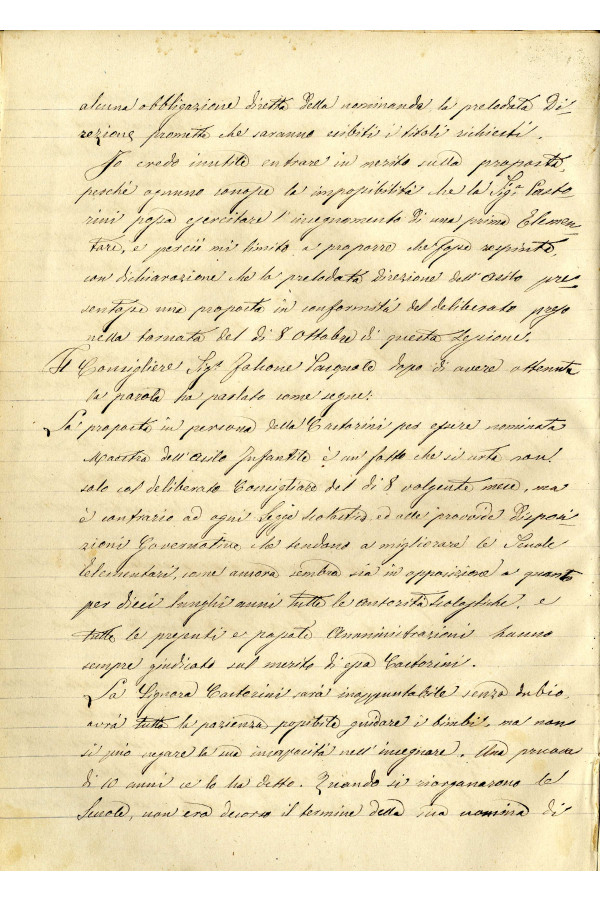 alcuna obbligazione diretta della nominanda la prelodata Di-
rezione promette che saranno esibiti i titoli richiesti.
Io credo inutile entrare in merito sulla proposta,
perché ognuno conosce la impossibilità che la Sig.ª Casto
rini possa esercitare l'insegnamento di una prima Elemen-
tare, e perciò mi limito a proporre che fosse respinta,
con dichiarazione che la prelodata Direzione dell'Asilo pre
sentasse una proposta in conformità del deliberato preso
nella tornata del dì 8 Ottobre di questa sessione.
Il Consigliere Sig.r Falcone Pasquale dopo di avere ottenuta
la parola ha parlato come segue:
La proposta in persona della Castorini per essere nominata
Maestra dell'Asilo Infantile è un fatto che si urta non
solo col deliberato Consigliare del dì 8 volgente mese, ma
è contrario ad ogni legge scolastica ed alle provvide Disposi
zioni Governative che tendono a migliorare le Scuole
Elementari, come ancora sembra sia in opposizione a quanto
per dieci lunghi anni tutte le autorità scolastiche, e
tutte le presenti e passate Amministrazioni hanno
sempre giudicato sul merito di essa Castorini.
La Signora Castorini sarà inappuntabile senza dubio,
avrà tutta la pazienza possibile guidare i bimbi, ma non
si può negare la sua incapacità nell'insegnare. Una pruova
di 10 anni ce lo ha detto. Quando si riorganarono le
Scuole, non era decorso il termine della sua nomina di